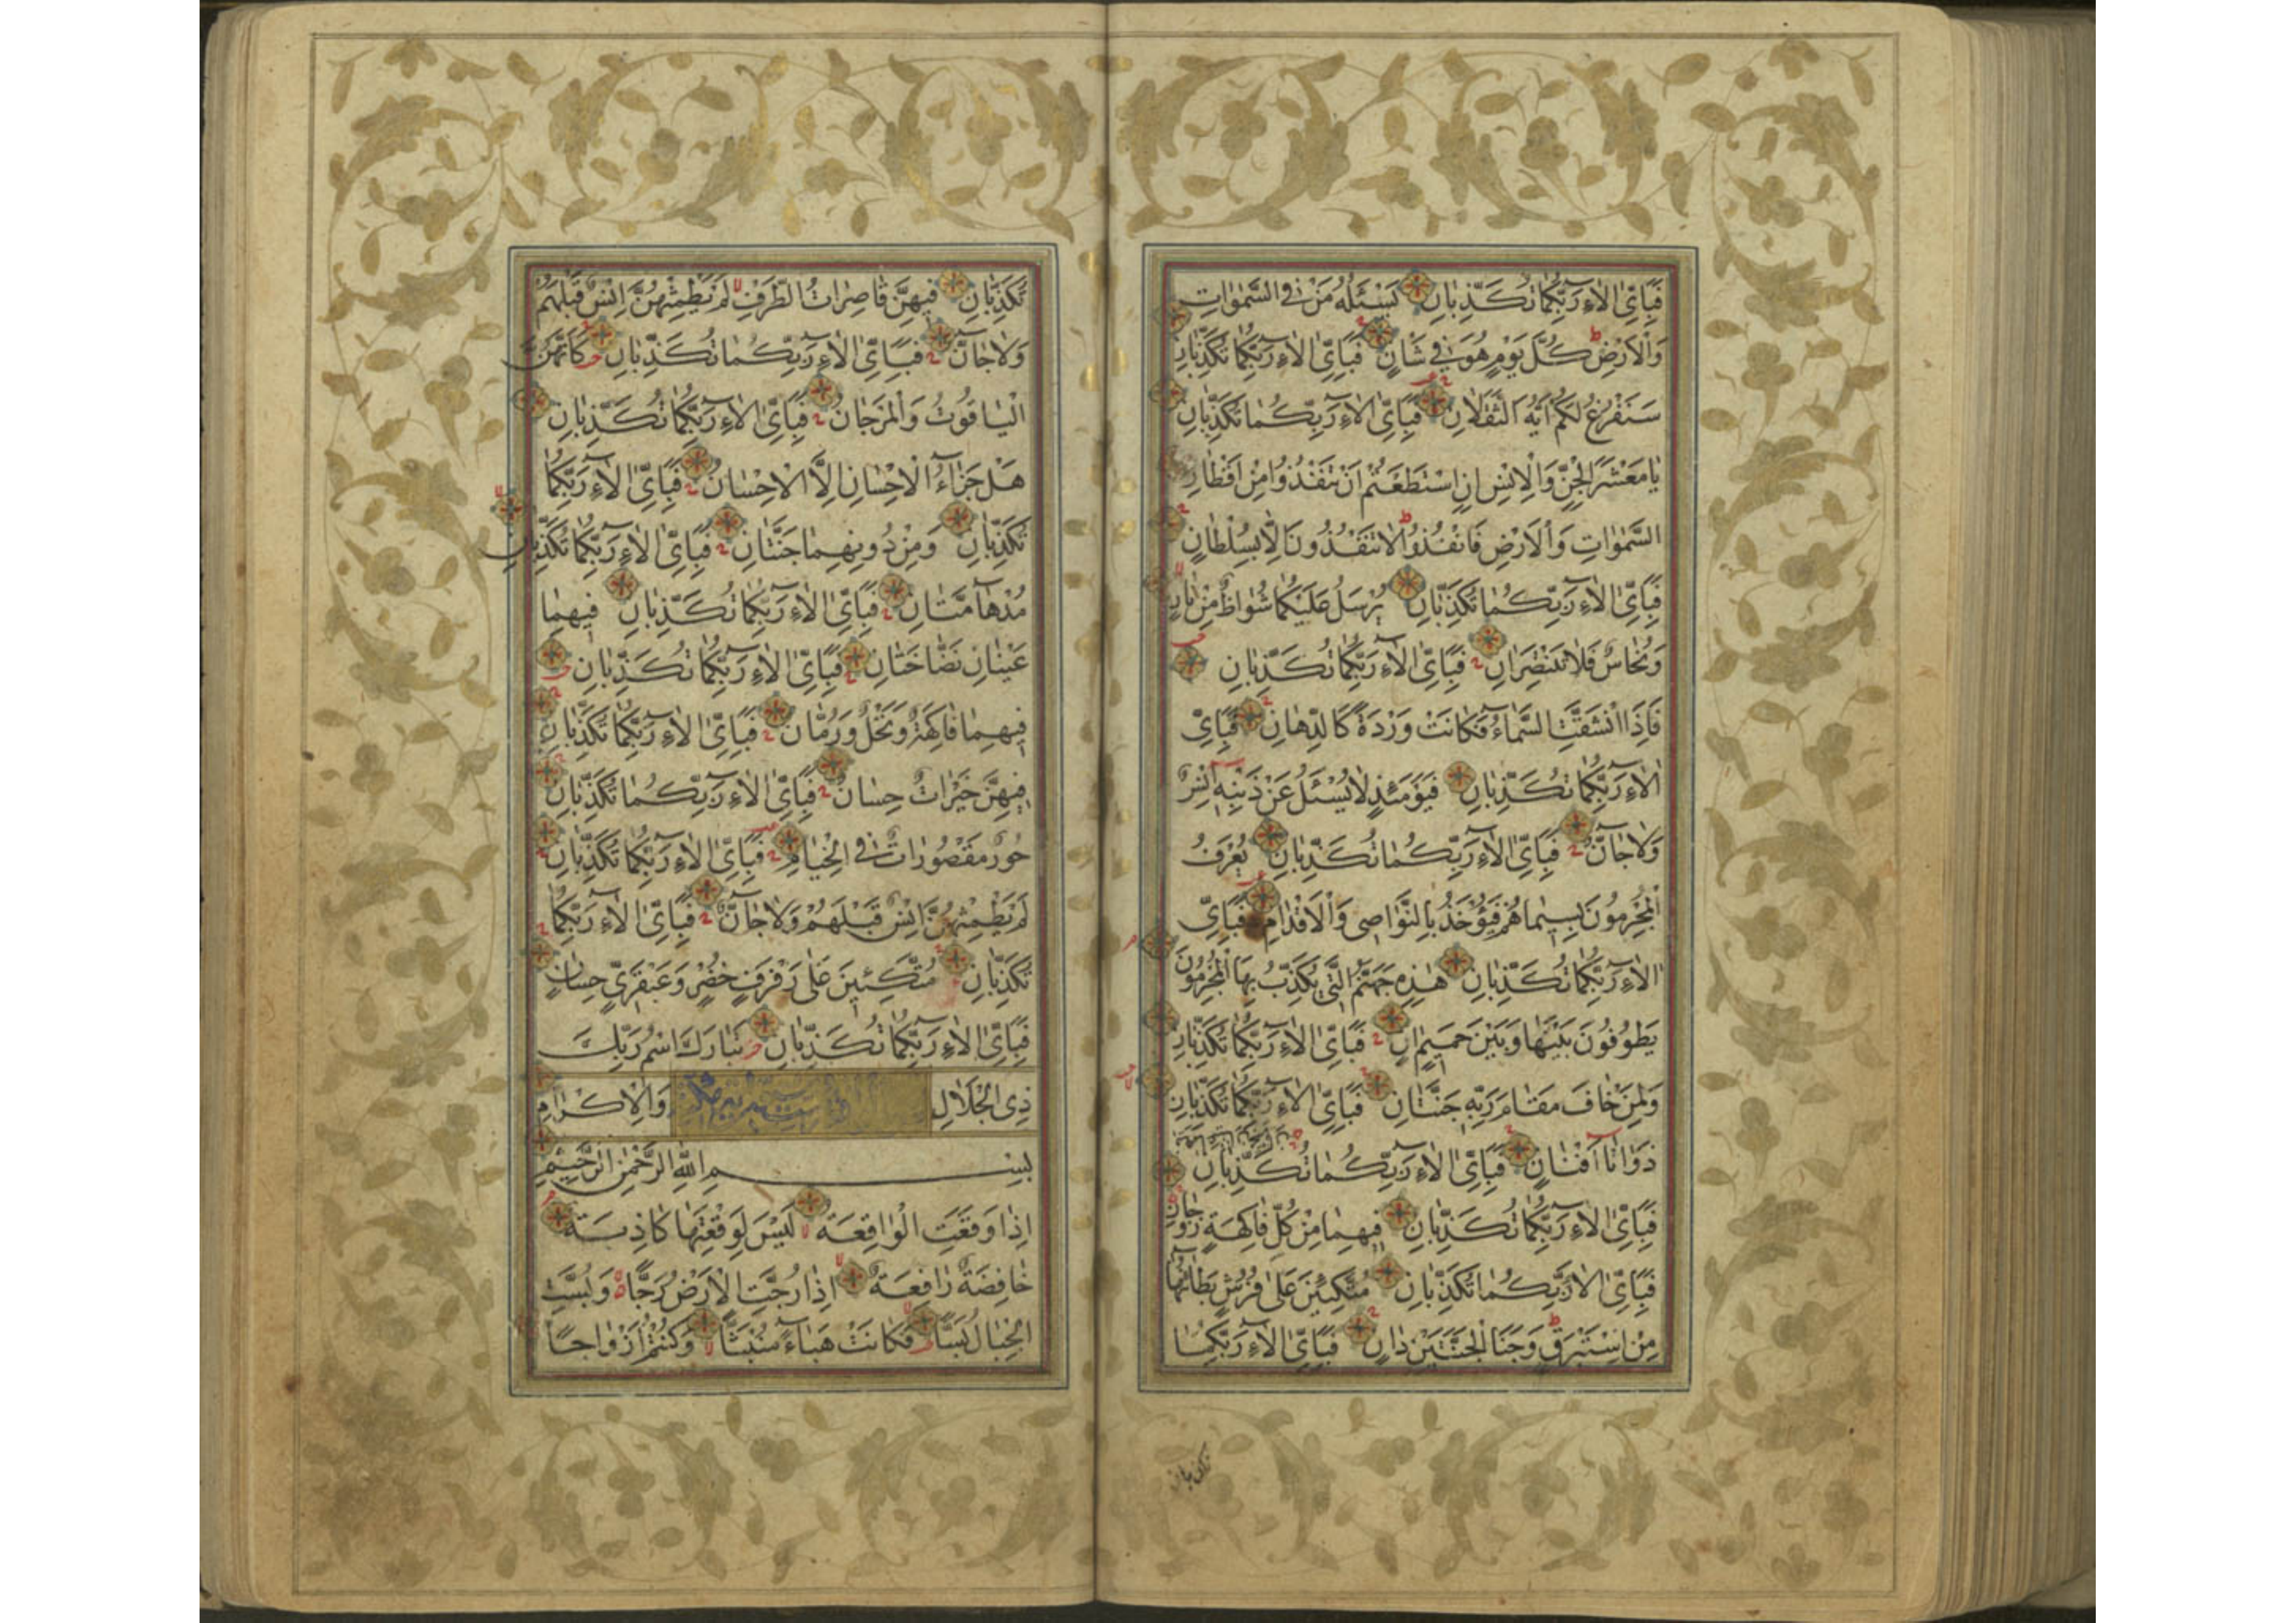 فَبِاَيِّ اٰلَاءِ رَبِّكُمَا تُكَذِّبَانِ يَسْـَٔلُهُ مَنْ فِي السَّمٰوَاتِ
وَالْاَرْضِ كُلَّ يَوْمٍ هُوَ فِي شَانٍ فَبِاَيِّ اٰلَاءِ رَبِّكُمَا تُكَذِّبَانِ
سَنَفْرُغُ لَكُمْ اَيُّهَ الثَّقَلَانِ فَبِاَيِّ اٰلَاءِ رَبِّكُمَا تُكَذِّبَانِ
يَامَعْشَرَ الْجِنِّ وَالْاِنْسِ اِنِ اسْتَطَعْتُمْ اَنْ تَنْفُذُوا مِنْ اَقْطَارِ
السَّمٰوَاتِ وَالْاَرْضِ فَانْفُذُوا لَاتَنْفُذُونَ اِلَّا بِسُلْطَانٍ
فَبِاَيِّ اٰلَاءِ رَبِّكُمَا تُكَذِّبَانِ يُرْسَلُ عَلَيْكُمَا شُوَاظٌ مِنْ نَارٍ
وَنُحَاسٌ فَلَا تَنْتَصِرَانِ فَبِاَيِّ اٰلَاءِ رَبِّكُمَا تُكَذِّبَانِ
فَاِذَا انْشَقَّتِ السَّمَاءُ فَكَانَتْ وَرْدَةً كَالدِّهَانِ فَبِاَيِّ
اٰلَاءِ رَبِّكُمَا تُكَذِّبَانِ فَيَوْمَئِذٍ لَايُسْـَٔلُ عَنْ ذَنْبِهِ اِنْسٌ
وَلَاجَانٌّ فَبِاَيِّ اٰلَاءِ رَبِّكُمَا تُكَذِّبَانِ يُعْرَفُ
الْمُجْرِمُونَ بِسِيمَاهُمْ فَيُؤْخَذُ بِالنَّوَاصِي وَالْاَقْدَامِ فَبِاَيِّ
اٰلَاءِ رَبِّكُمَا تُكَذِّبَانِ هٰذِهِ جَهَنَّمُ الَّتِي يُكَذِّبُ بِهَا الْمُجْرِمُونَ
يَطُوفُونَ بَيْنَهَا وَبَيْنَ حَمِيمٍ اٰنٍ فَبِاَيِّ اٰلَاءِ رَبِّكُمَا تُكَذِّبَانِ
وَلِمَنْ خَافَ مَقَامَ رَبِّهِ جَنَّتَانِ فَبِاَيِّ اٰلَاءِ رَبِّكُمَا تُكَذِّبَانِ
ذَوَاتَا اَفْنَانٍ فَبِاَيِّ اٰلَاءِ رَبِّكُمَا تُكَذِّبَانِ
فَبِاَيِّ اٰلَاءِ رَبِّكُمَا تُكَذِّبَانِ فِيهِمَا مِنْ كُلِّ فَاكِهَةٍ زَوْجَانِ
فَبِاَيِّ اٰلَاءِ رَبِّكُمَا تُكَذِّبَانِ مُتَّكِئِينَ عَلَى فُرُشٍ بَطَائِنُهَا
مِنْ اِسْتَبْرَقٍ وَجَنَا الْجَنَّتَيْنِ دَانٍ فَبِاَيِّ اٰلَاءِ رَبِّكُمَا
تُكَذِّبَانِ فِيهِنَّ قَاصِرَاتُ الطَّرْفِ لَمْ يَطْمِثْهُنَّ اِنْسٌ قَبْلَهُمْ
وَلَاجَانٌّ فَبِاَيِّ اٰلَاءِ رَبِّكُمَا تُكَذِّبَانِ كَاَنَّهُنَّ
الْيَاقُوتُ وَالْمَرْجَانُ فَبِاَيِّ اٰلَاءِ رَبِّكُمَا تُكَذِّبَانِ
هَلْ جَزَاءُ الْاِحْسَانِ اِلَّا الْاِحْسَانُ فَبِاَيِّ اٰلَاءِ رَبِّكُمَا
تُكَذِّبَانِ وَمِنْ دُونِهِمَا جَنَّتَانِ فَبِاَيِّ اٰلَاءِ رَبِّكُمَا تُكَذِّبَانِ
مُدْهَامَّتَانِ فَبِاَيِّ اٰلَاءِ رَبِّكُمَا تُكَذِّبَانِ فِيهِمَا
عَيْنَانِ نَضَّاخَتَانِ فَبِاَيِّ اٰلَاءِ رَبِّكُمَا تُكَذِّبَانِ
فِيهِمَا فَاكِهَةٌ وَنَخْلٌ وَرُمَّانٌ فَبِاَيِّ اٰلَاءِ رَبِّكُمَا تُكَذِّبَانِ
فِيهِنَّ خَيْرَاتٌ حِسَانٌ فَبِاَيِّ اٰلَاءِ رَبِّكُمَا تُكَذِّبَانِ
حُورٌ مَقْصُورَاتٌ فِي الْخِيَامِ فَبِاَيِّ اٰلَاءِ رَبِّكُمَا تُكَذِّبَانِ
لَمْ يَطْمِثْهُنَّ اِنْسٌ قَبْلَهُمْ وَلَاجَانٌّ فَبِاَيِّ اٰلَاءِ رَبِّكُمَا
تُكَذِّبَانِ مُتَّكِئِينَ عَلَى رَفْرَفٍ خُضْرٍ وَعَبْقَرِيٍّ حِسَانٍ
فَبِاَيِّ اٰلَاءِ رَبِّكُمَا تُكَذِّبَانِ تَبَارَكَ اسْمُ رَبِّكَ
ذِي الْجَلَالِ وَالْاِكْرَامِ
بِسْمِ اللّٰهِ الرَّحْمٰنِ الرَّحِيمِ
اِذَا وَقَعَتِ الْوَاقِعَةُ لَيْسَ لِوَقْعَتِهَا كَاذِبَةٌ
خَافِضَةٌ رَافِعَةٌ اِذَا رُجَّتِ الْاَرْضُ رَجًّا وَبُسَّتِ
الْجِبَالُ بَسًّا فَكَانَتْ هَبَاءً مُنْبَثًّا وَكُنْتُمْ اَزْوَاجًا